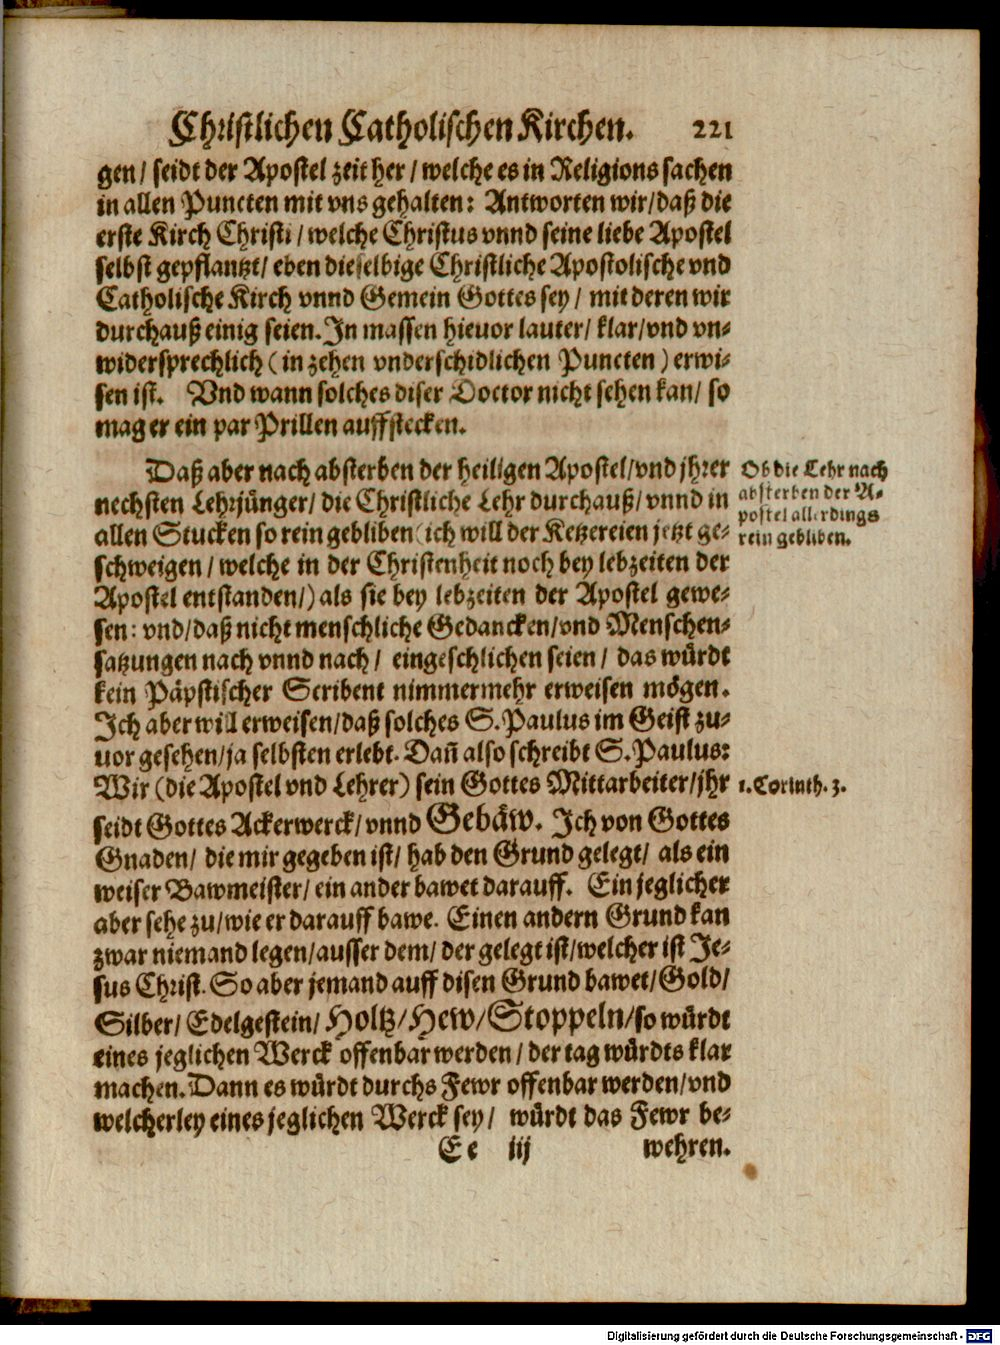 Christlichen Catholischen Kirchen. 221
gen/ seidt der Apostel zeit her/ welche es in Religions sachen
in allen Puncten mit vns gehalten: Antworten wir/ daß die
erste Kirch Christi/ welche Christus vnnd seine liebe Apostel
selbst gepflantzt/ eben dieselbige Christliche Apostolische vnd
Catholische Kirch vnnd Gemein Gottes sey/ mit deren wir
durchauß einig seien. In massen hieuor lauter/ klar/ vnd vn-
widersprechlich (in zehen vnderschidlichen Puncten) erwi-
sen ist. Vnd wann solches diser Doctor nicht sehen kan/ so
mag er ein par Prillen auffstecken.
Daß aber nach absterben der heiligen Apostel/ vnd jhrer
nechsten Lehrjünger/ die Christliche Lehr durchauß/ vnnd in
allen Stucken so rein gebliben (ich will der Ketzereien jetzt ge-
schweigen/ welche in der Christenheit noch bey lebzeiten der
Apostel entstanden/) als sie bey lebzeiten der Apostel gewe-
sen: vnd/ daß nicht menschliche Gedancken/ vnd Menschen-
satzungen nach vnnd nach/ eingeschlichen seien/ das würdt
kein Päpstischer Scribent nimmermehr erweisen mögen.
Ich aber will erweisen/ daß solches S. Paulus im Geist zu-
uor gesehen/ ja selbsten erlebt. Dañ also schreibt S. Paulus:
Wir (die Apostel vnd Lehrer) sein Gottes Mittarbeiter/ jhr
seidt Gottes Ackerwerck/ vnnd Gebäw. Ich von Gottes
Gnaden/ die mir gegeben ist/ hab den Grund gelegt/ als ein
weiser Bawmeister/ ein ander bawet darauff. Ein jeglicher
aber sehe zu/ wie er darauff bawe. Einen andern Grund kan
zwar niemand legen/ ausser dem/ der gelegt ist/ welcher ist Je-
sus Christ. So aber jemand auff disen Grund bawet/ Gold/
Silber/ Edelgestein/ Holtz/ Hew/ Stoppeln/ so würdt
eines jeglichen Werck offenbar werden/ der tag würdts klar
machen. Dann es würdt durchs Fewr offenbar werden/ vnd
welcherley eines jeglichen Werck sey/ würdt das Fewr be-
Ee iij wehren.
Ob die Lehr nach
absterben der A-
postel allerdings
rein gebliben.
1. Corinth. 3.
Digitalisierung gefördert durch die Deutsche Forschungsgemeinschaft - DFG